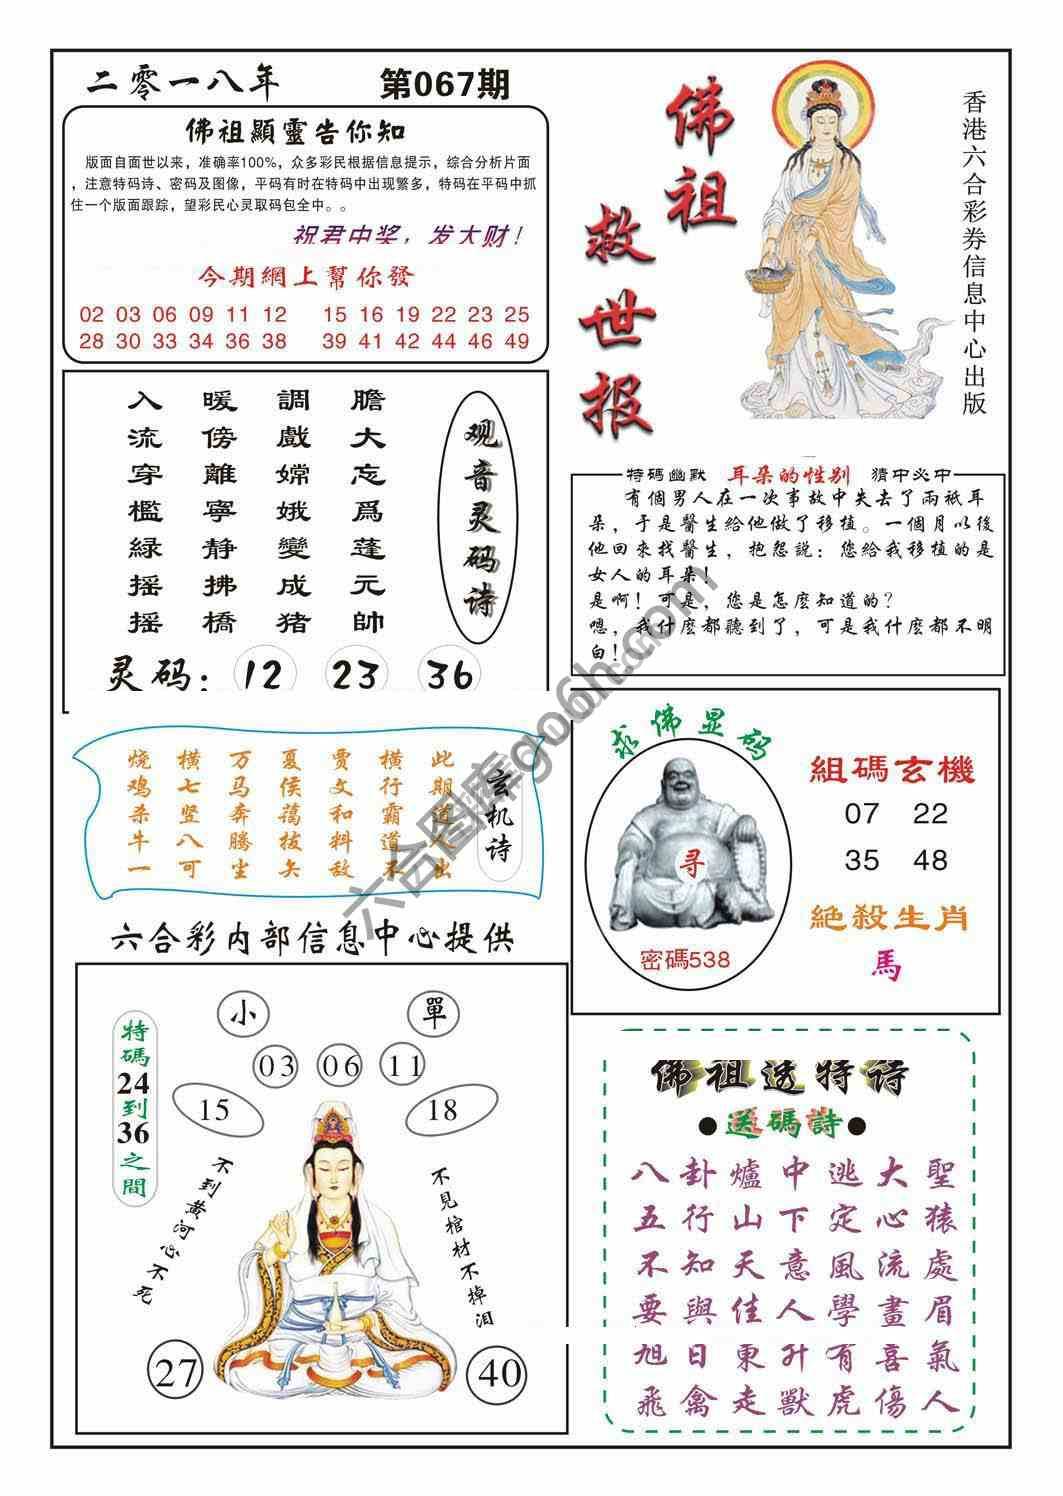 二零一八年
第067期
佛祖顯靈告你知
版面自面世以来，准确率100%，众多彩民根据信息提示，综合分析片面
，注意特码诗、密码及图像，平码有时在特码中出现繁多，特码在平码中抓
住一个版面跟踪，望彩民心灵取码包全中。。
祝君中奖，发大财！
今期網上幫你發
02 03 06 09 11 12 15 16 19 22 23 25
28 30 33 34 36 38 39 41 42 44 46 49
佛祖
救世报
香港六合彩券信息中心出版
观音灵码诗
膽大忘爲蓬元帥
調戲嫦娥變成猪
暖傍離寧静拂橋
入流穿檻緑摇摇
灵码：12 23 36
特碼幽默 耳朵的性别 猜中必中
有個男人在一次事故中失去了兩祇耳
朵，于是醫生給他做了移植。一個月以後
他回來找醫生，抱怨説：您給我移植的是
女人的耳朵！
是啊！可是，您是怎麽知道的？
嗯，我什麽都聽到了，可是我什麽都不明
白！
玄机诗
此期道人出
横行霸道不
贾文和料敌
夏侯蔼拔矢
万马奔腾生
横七竖八可
烧鸡杀牛一
求佛显码
寻
密碼538
組碼玄機
07 22
35 48
絶殺生肖
馬
六合彩内部信息中心提供
小
單
03 06 11
15
18
特碼24到36之間
不到黄河心不死
不見棺材不掉泪
27
40
佛祖透特诗
●送碼詩●
八卦爐中逃大聖
五行山下定心猿
不知天意風流處
要與佳人學畫眉
旭日東升有喜氣
飛禽走獸虎傷人
六合图库go6h.com